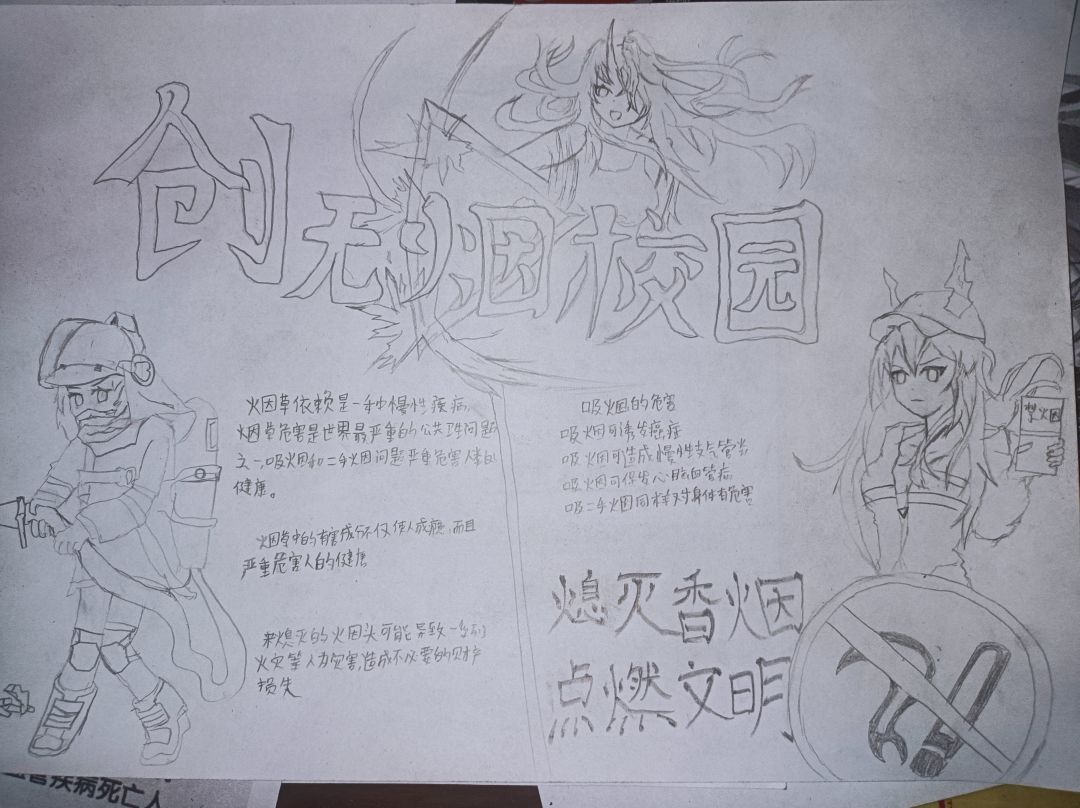 创无烟校园
烟草依赖是一种慢性疾病,
烟草危害是世界最严重的公共卫生问题
之一,吸烟和二手烟问题严重危害人类的
健康。
烟草中的有害成分不仅使人成瘾,而且
严重危害人的健康
未熄灭的烟头可能导致一系列
火灾等人为灾害,造成不必要的财产
损失
吸烟的危害
吸烟可诱发癌症
吸烟可造成慢性支气管炎
吸烟可促发心脑血管病
吸二手烟同样对身体有危害
禁烟
熄灭香烟
点燃文明
疾病死亡人